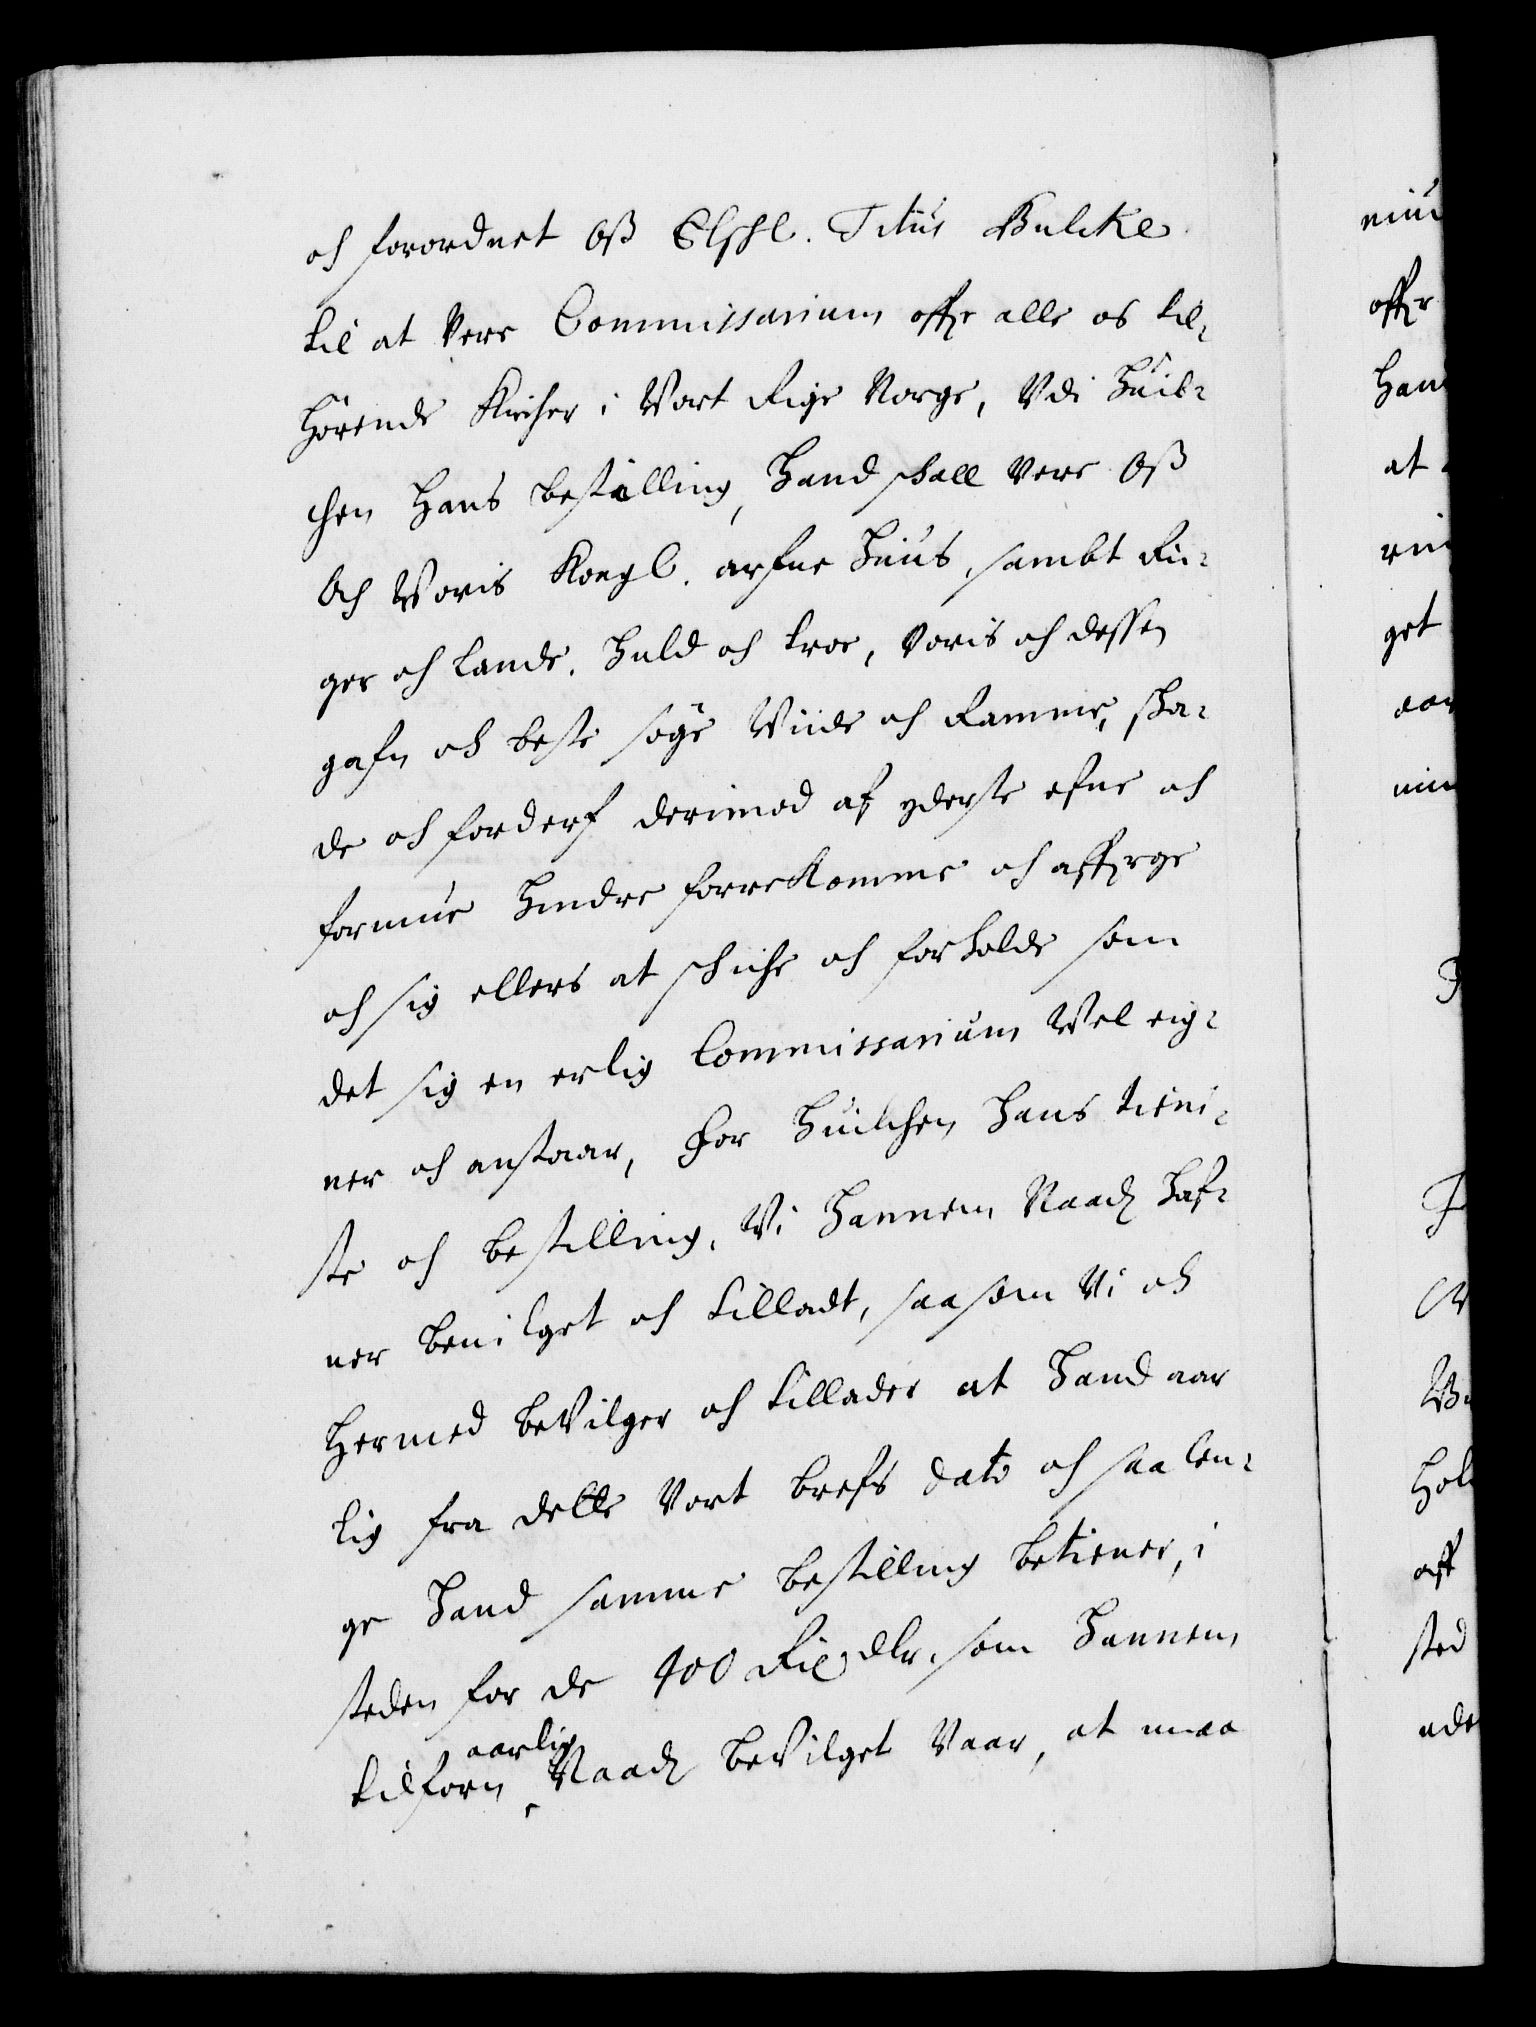 och forordnet Oß Elschl. Titus Bulcke
til at vere Commissarium offr alle os til¬
hörende Kircher i Vort Rige Norge, Udi huil¬
chen hans bestilling, hand schall vere Oß
Och Voris Kongl. arfue huus, sambt Ri¬
ger och lande. huld och troe, voris och dessen
gafn och beste söge Viide och Ramme, ska¬
de och forderf derimod af yderste efne och
formue hindre forrekomme och affverge
och sig ellers at schiche och forholde som
det sig en erlig Commissarium Vel eig¬
ner och anstaar, For huilchen hans tieni¬
ste och bestilling, Vi hannem Naadl haf¬
ver bevilget och tilladt, saasom Vi och
hermed beVilger och tillader at hand aar
lig fra dette Vort brefs dato och saa len¬
ge hand samme bestilling betiener, i
steden for de 400 Rixdlr. som hannem
tilforn aarlig Naadl beVilget Vaar, at maa
offr
at
get
aff
sted